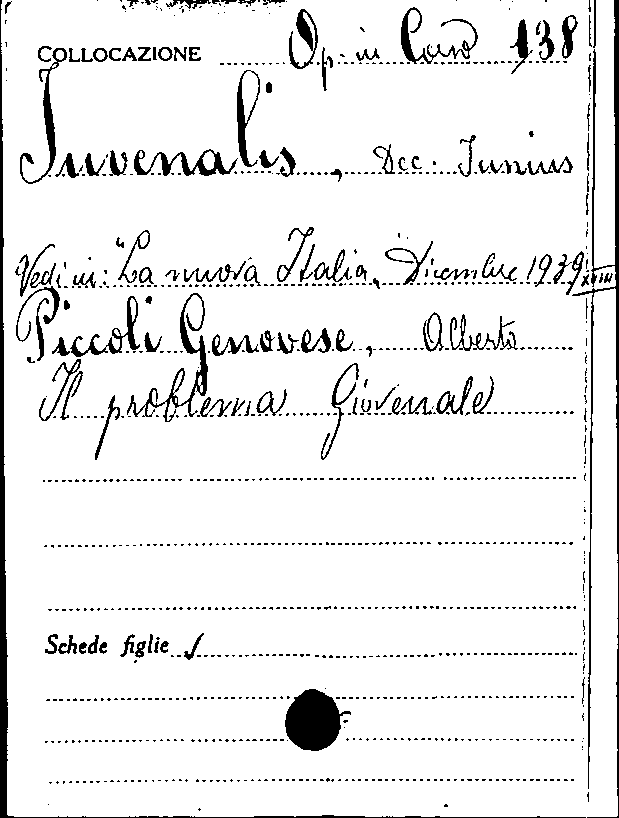 COLLOCAZIONE Op. in Caso 138
Juvenalis, Dec. Junius
Vedi in: "La nuova Italia" Dicembre 1939 XVIII
Piccoli Genovese, Alberto
Il problema Giovenale
Schede figlie ✓